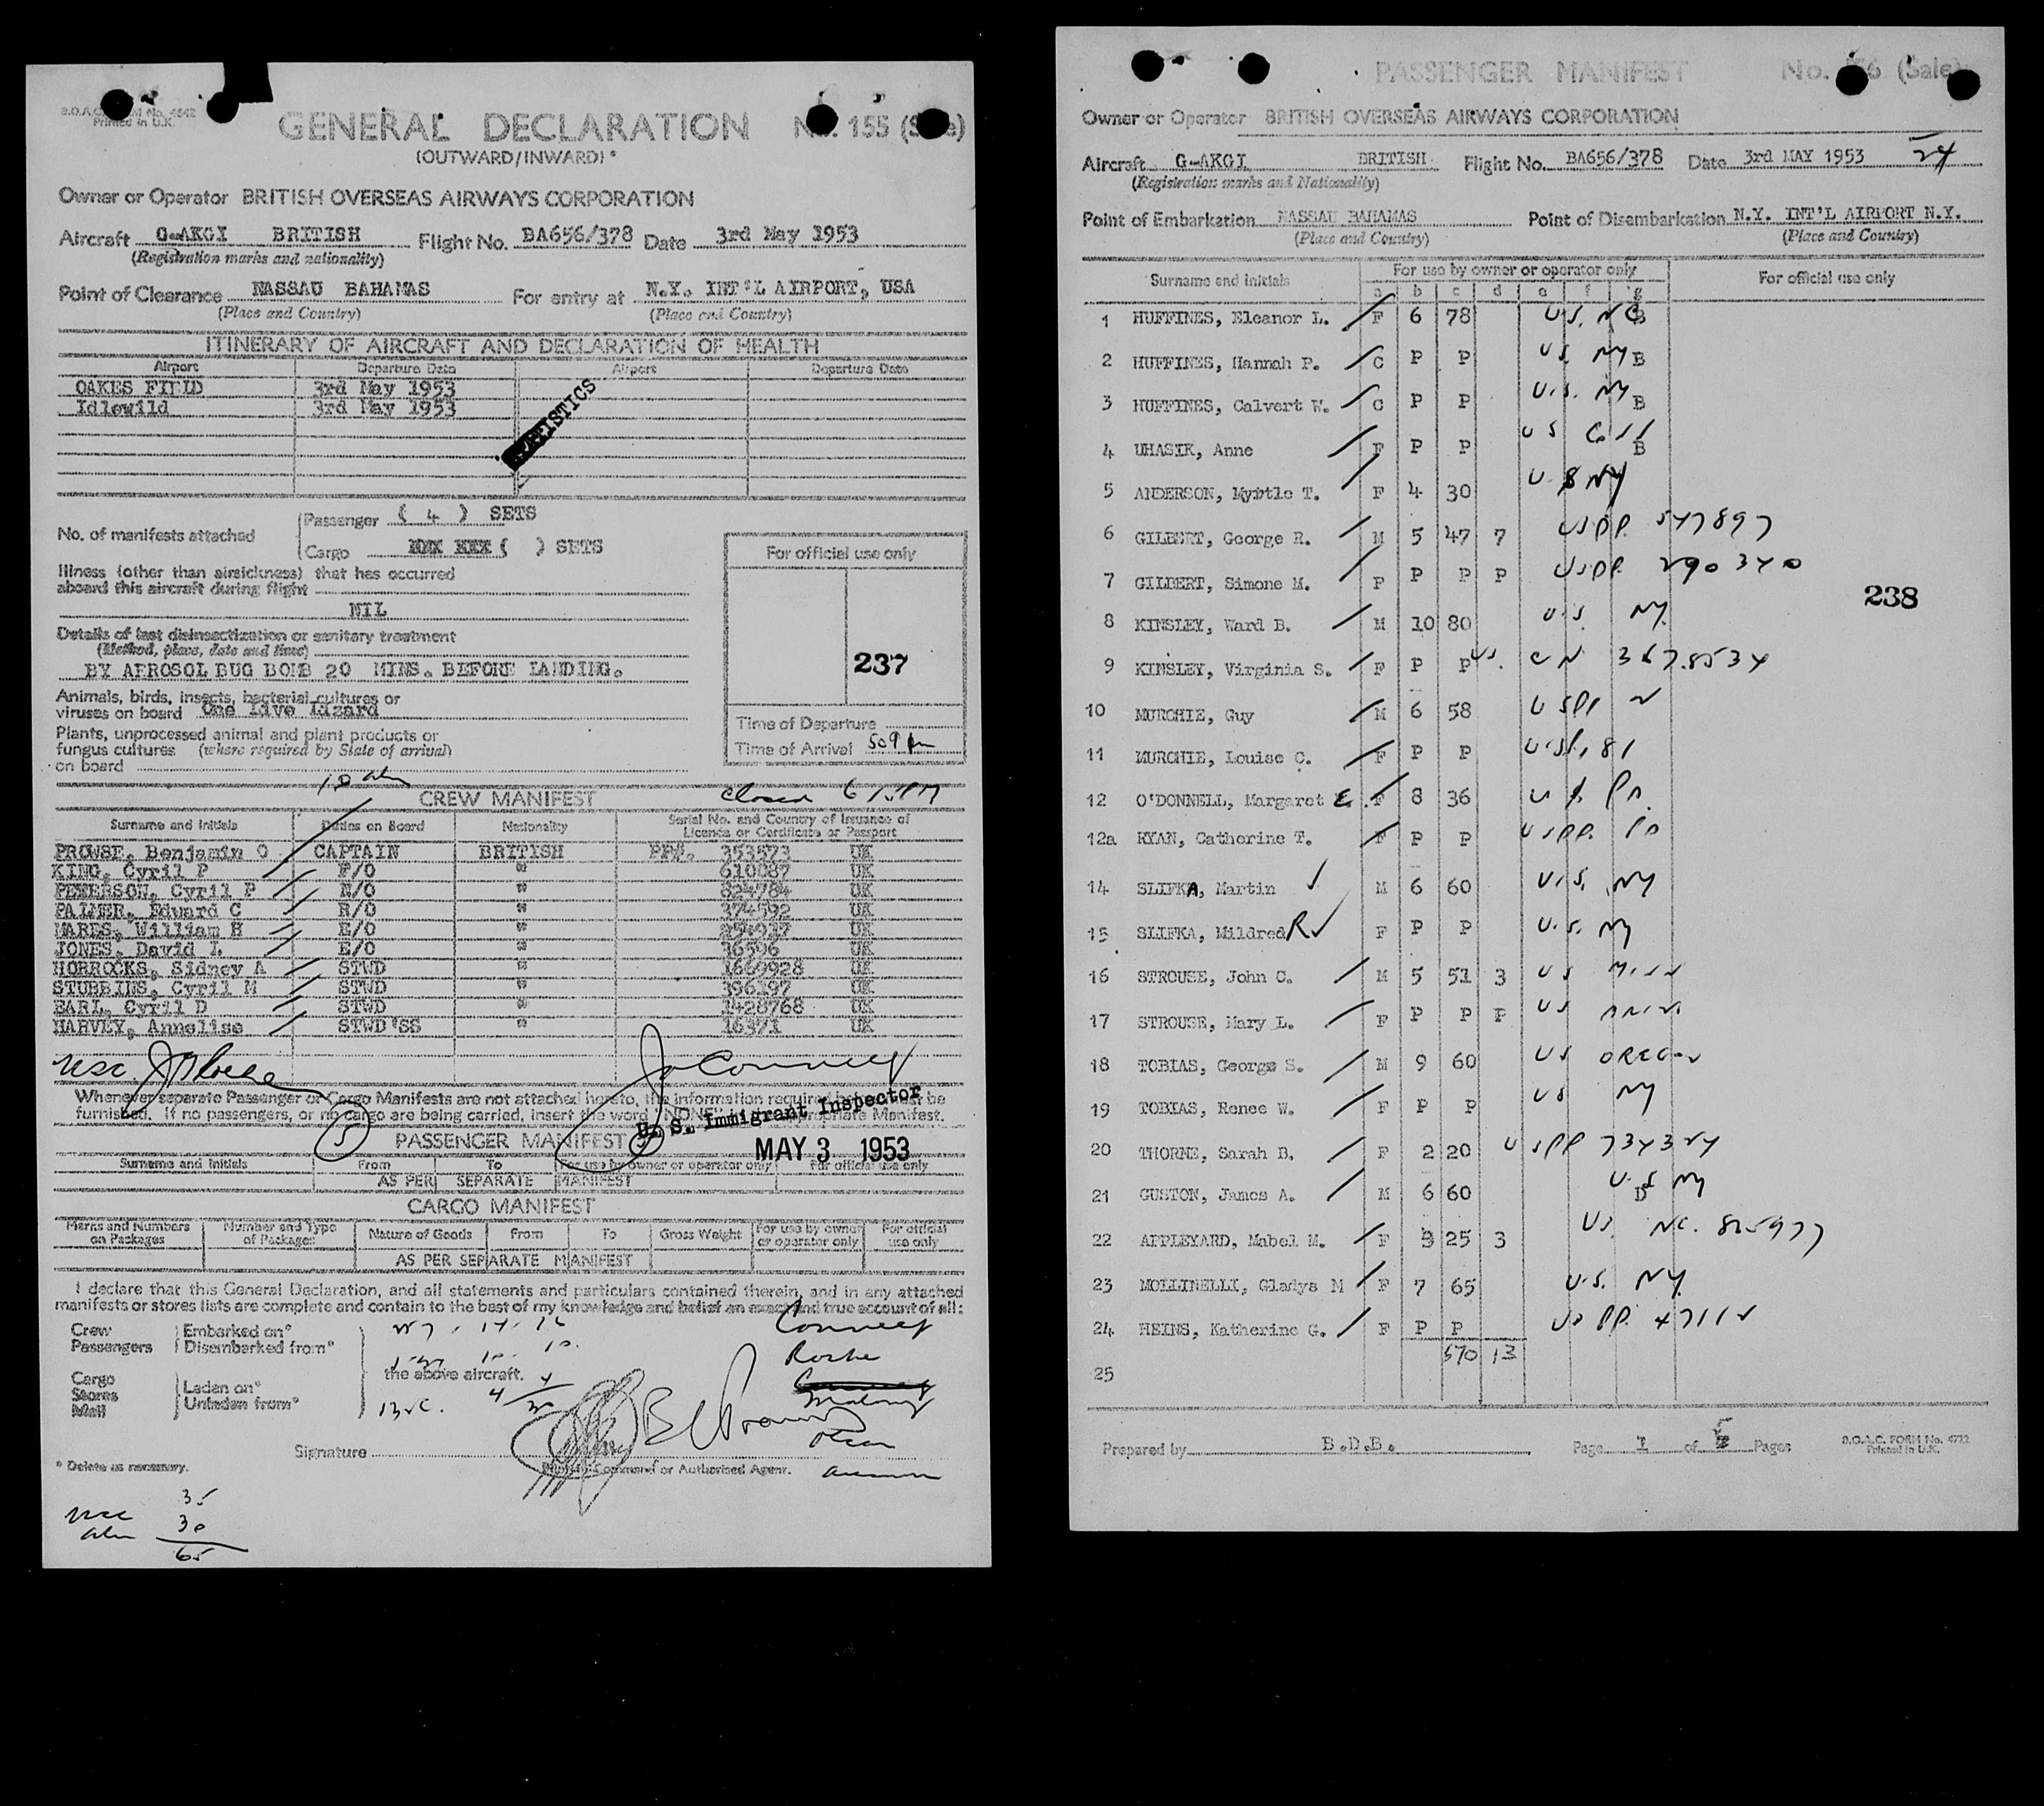 B.O.A.C. No. 4642
Printed in U.K.
GENERAL DECLARATION No. 155 (Sale)
(OUTWARD/INWARD) *
Owner or Operator BRITISH OVERSEAS AIRWAYS CORPORATION
Aircraft G-AKGI BRITISH Flight No. BA656/378 Date 3rd May 1953
(Registration marks and nationality)
Point of Clearance NASSAU BAHAMAS For entry at N.Y. INT'L AIRPORT, USA
(Place and Country) (Place and Country)
ITINERARY OF AIRCRAFT AND DECLARATION OF HEALTH
Airport Departure Date Airport Departure Date
OAKES FIELD 3rd May 1953
Idlewild 3rd May 1953
STATISTICS
No. of manifests attached
Passenger ( 4 ) SETS
Cargo XXX XXX ( ) SETS
For official use only
Illness (other than airsickness) that has occurred
aboard this aircraft during flight
NIL
Details of last disinsectization or sanitary treatment
(Method, place, date and time)
BY AEROSOL BUG BOMB 20 MINS. BEFORE LANDING.
237
Animals, birds, insects, bacterial cultures or
viruses on board One live lizard
Plants, unprocessed animal and plant products or
fungus cultures (where required by State of arrival)
on board
Time of Departure
Time of Arrival 509 pm
CREW MANIFEST
closed
Surname and Initials Duties on Board Nationality Serial No. and Country of Issuance of
Licence or Certificate or Passport
PROWSE, Benjamin O CAPTAIN BRITISH PP#. 353573 UK
KING, Cyril P F/O " 610087 UK
PETERSON, Cyril P N/O " 824784 UK
PALMER, Edward C R/O " 374592 UK
MARES, William H E/O " 254937 UK
JONES, David L E/O " 36596 UK
HORROCKS, Sidney A STWD " 1669928 UK
STUBBINS, Cyril M STWD " 396197 UK
EARL, Cyril D STWD " 1428768 UK
HARVEY, Annelise STWD'SS " 16371 UK
Whenever separate Passenger or Cargo Manifests are not attached hereto, the information required must be
furnished. If no passengers, or no cargo are being carried, insert the word "NONE" appropriate Manifest.
U. S. Immigrant Inspector
MAY 3 1953
5
PASSENGER MANIFEST
Surname and Initials From To For use by owner or operator only For official use only
AS PER SEPARATE MANIFEST
CARGO MANIFEST
Marks and Numbers on Packages Number and Type of Packages Nature of Goods From To Gross Weight For use by owner or operator only For official use only
AS PER SEPARATE MANIFEST
I declare that this General Declaration, and all statements and particulars contained therein, and in any attached
manifests or stores lists are complete and contain to the best of my knowledge and belief an exact and true account of all:
Crew
Passengers
Embarked on*
Disembarked from*
the above aircraft.
Cargo
Stores
Mail
Laden on*
Unladen from*
Signature
Pilot-in-Command or Authorised Agent.
* Delete as necessary.
35
30
65
PASSENGER MANIFEST No. 156 (Sale)
Owner or Operator BRITISH OVERSEAS AIRWAYS CORPORATION
Aircraft G-AKGI BRITISH Flight No. BA656/378 Date 3rd MAY 1953 24
(Registration marks and Nationality)
Point of Embarkation NASSAU BAHAMAS Point of Disembarkation N.Y. INT'L AIRPORT N.Y.
(Place and Country) (Place and Country)
Surname and Initials For use by owner or operator only For official use only
a b c d e f g
1 HUFFINES, Eleanor L. F 6 78 U.S. NC B
2 HUFFINES, Hannah P. C P P US NY B
3 HUFFINES, Calvert W. C P P U.S. NY B
4 UHASIK, Anne F P P US B
5 ANDERSON, Myrtle T. F 4 30 US NY
6 GILBERT, George R. M 5 47 7 USPP. 547897
7 GILBERT, Simone M. F P P P USPP. 290340
8 KINSLEY, Ward B. M 10 80 U.S. NY.
238
9 KINSLEY, Virginia S. F P P US. CN 3678534
10 MURCHIE, Guy M 6 58
11 MURCHIE, Louise C. F P P
12 O'DONNELL, Margaret E. F 8 36
12a RYAN, Catherine T. F P P
14 SLIFKA, Martin M 6 60 U.S. NY
15 SLIFKA, Mildred R F P P U.S. NY
16 STROUSE, John C. M 5 51 3 US
17 STROUSE, Mary L. F P P P US
18 TOBIAS, George S. M 9 60 US OREGON
19 TOBIAS, Renee W. F P P US NY
20 THORNE, Sarah B. F 2 20 USPP 734324
21 GUSTON, James A. M 6 60 U.S NY
22 APPLEYARD, Mabel M. F 3 25 3 US. NC. 825977
23 MOLLINELLI, Gladys M F 7 65 U.S. NY.
24 HEINS, Katherine G. F P P US PP. 47112
570 13
25
Prepared by B.D.B. Page 1 of 5 Pages
B.O.A.C. FORM No. 4722
Printed in U.K.